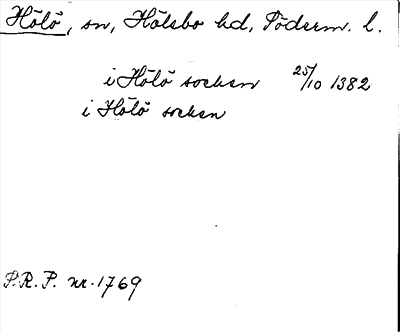 Hölö, sn, Hölebo hd, Söderm. l.
i Hölö socken 25/10 1382
i Hölö socken
S.R.P. nr. 1769